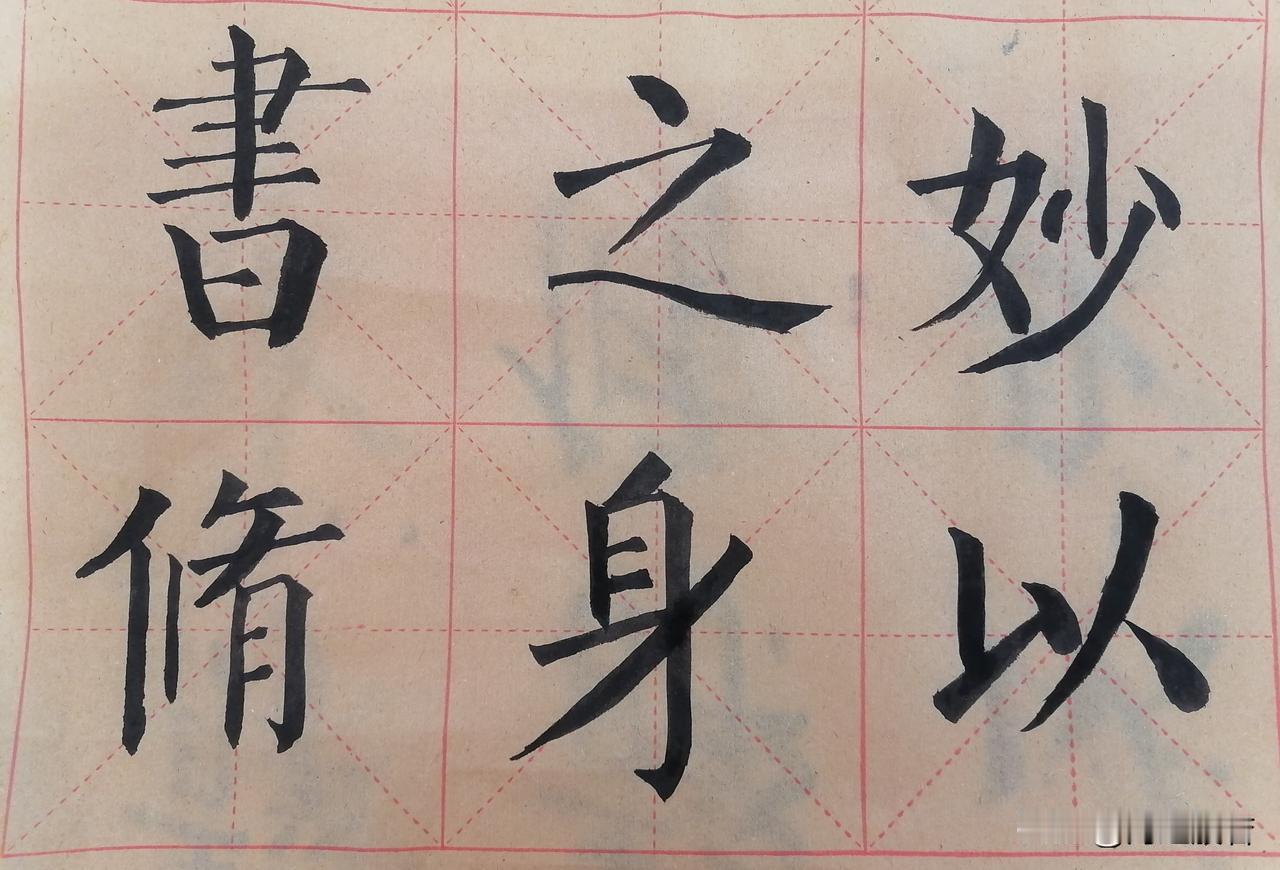 書之妙
脩身以